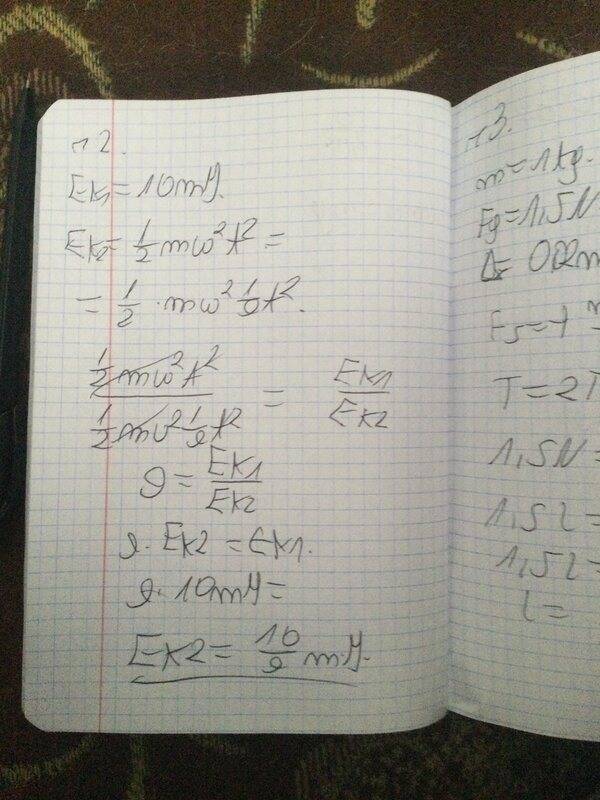 n2.
Ek1 = 10mY.
Ek2 = 1/2 mω²A² =
= 1/2 · mω² 1/9 A².
(1/2 mω²A²) / (1/2 mω² 1/9 A²) = Ek1/Ek2
9 = Ek1/Ek2
9 · Ek2 = Ek1.
9 · 10mY =
Ek2 = 10/9 mY.
n3.
m = 1kg.
Fg = 1,5N
Δ = 0,02m
T = 2
1,5N =
1,5l =
1,5l =
l =